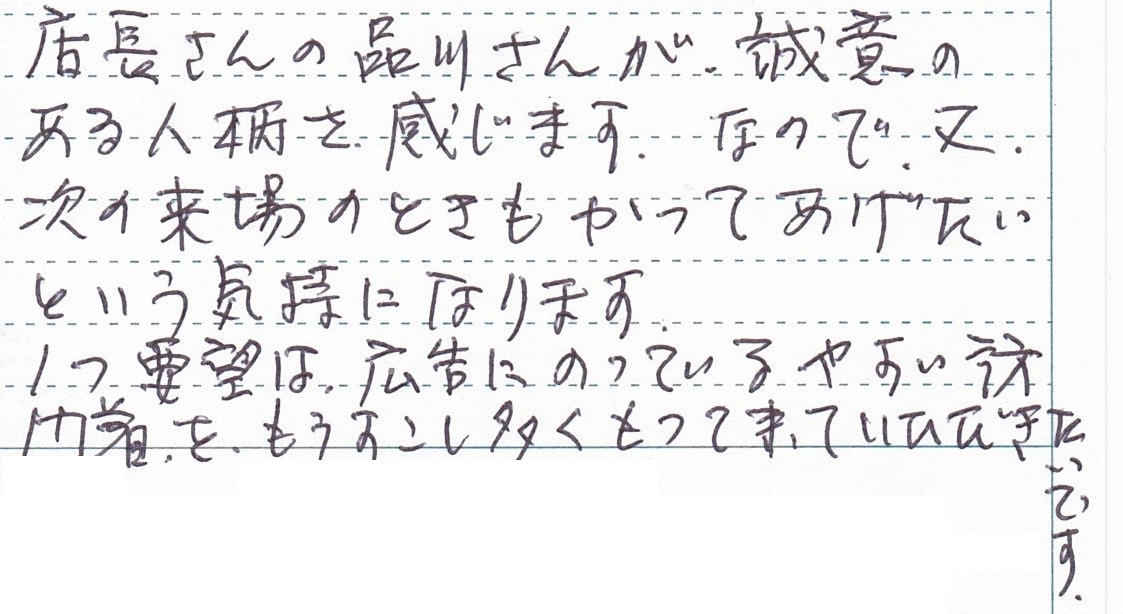 店長さんの品川さんが、誠意の
ある人柄を感じます。なので、又、
次の来場のときもかってあげたい
という気持になります。
1つ要望は、広告にのっているやすい訪
門着を、もうすこし多くもってきていただきたいです。